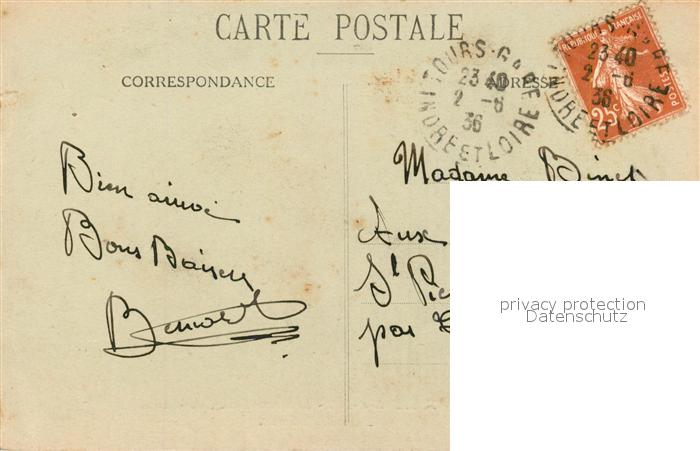 CARTE POSTALE
CORRESPONDANCE
ADRESSE
TOURS-GARE
23 40
2 -6
36
INDRE ET LOIRE
REPUBLIQUE FRANÇAISE
POSTES
25c
TOURS-GARE
23 40
2 -6
36
INDRE ET LOIRE
Bien arrivé
Bons Baisers
Benoit
Madame Binet
Aux
St Pie
par
privacy protection
Datenschutz